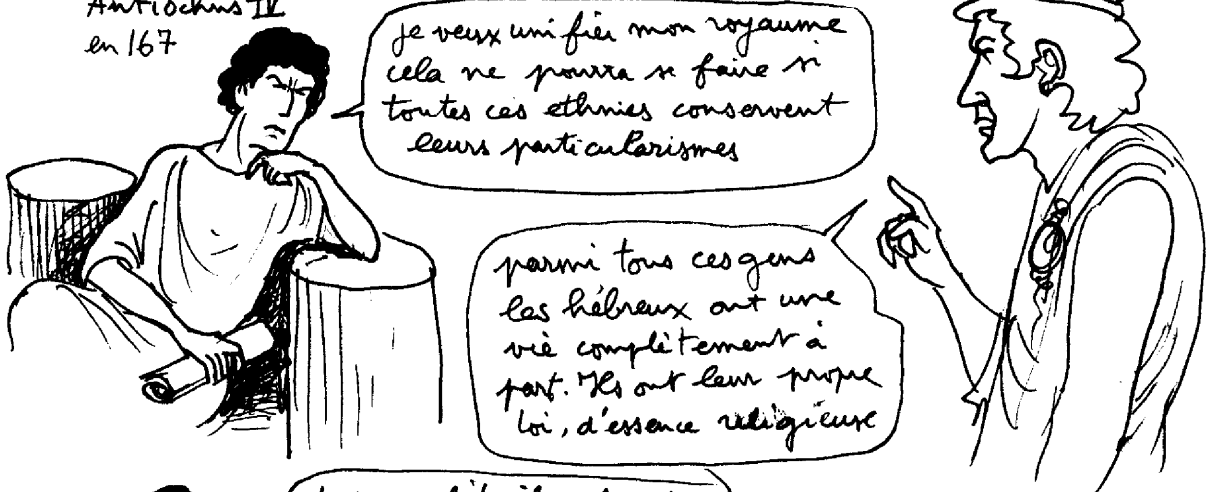 Antiochus IV
en 167
je veux unifier mon royaume
cela ne pourra se faire si
toutes ces ethnies conservent
leurs particularismes
parmi tous ces gens
les hébreux ont une
vie complètement à
part. Ils ont leur propre
loi, d'essence religieuse